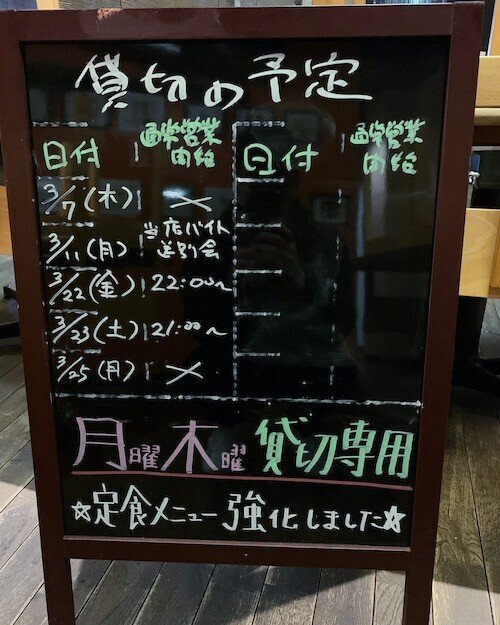 貸切の予定
日付 通常営業開始 日付 通常営業開始
3/7(木) ×
3/11(月) 当店バイト送別会
3/22(金) 22:00〜
3/23(土) 21:00〜
3/25(月) ×
月曜木曜 貸切専用
☆定食メニュー強化しました☆